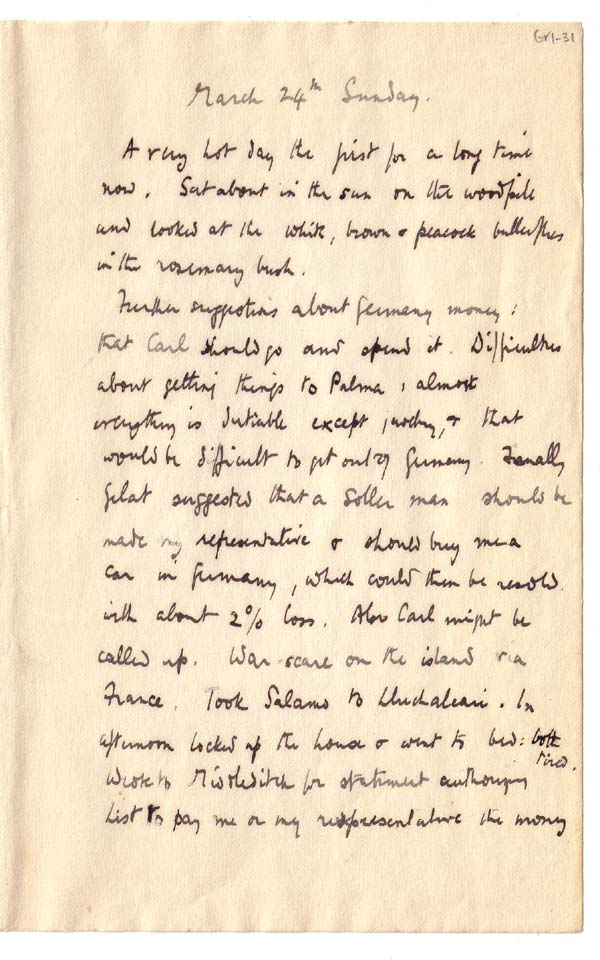 GV1-31
March 24th Sunday.
A very hot day the first for a long time
now. Sat about in the sun on the woodpile
and looked at the white, brown & peacock butterflies
in the rosemary bush.
Further suggestions about Germany money:
that Carl should go and spend it. Difficulties
about getting things to Palma: almost
everything is dutiable except jewelry, & that
would be difficult to get out of Germany. Finally
Gelat suggested that a Soller man should be
made my representative & should buy me a
car in Germany, which could then be resold
with about 2% loss. Also Carl might be
called up. War scare on the island via
France. Took Salamo to Lluchalcari. In
afternoon locked up the house & went to bed: both
tired.
Wrote to Middleditch for statement authorizing
List to pay me or my representative the money